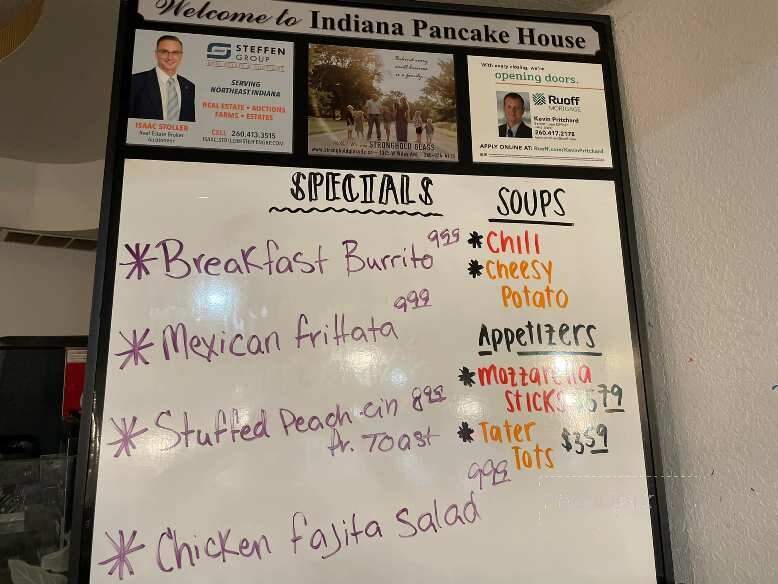 Welcome to Indiana Pancake House
STEFFEN
GROUP
SERVING
NORTHEAST INDIANA
REAL ESTATE • AUCTIONS
FARMS • ESTATES
ISAAC STOLLER
Real Estate Broker
Auctioneer
CELL 260.413.3515
is a family.
STRONGHOLD GLASS
With every closing, we're
opening doors.
Ruoff
MORTGAGE
Kevin Pritchard
260.417.2178
APPLY ONLINE AT: Ruoff.com/KevinPritchard
SPECIALS
* Breakfast Burrito 9.99
* Mexican frittata 9.99
* Stuffed Peach cin 8.99
fr. Toast
* Chicken fajita salad 9.99
SOUPS
* Chili
* Cheesy
Potato
Appetizers
* Mozzarella
Sticks $5.79
* Tater
Tots $3.59